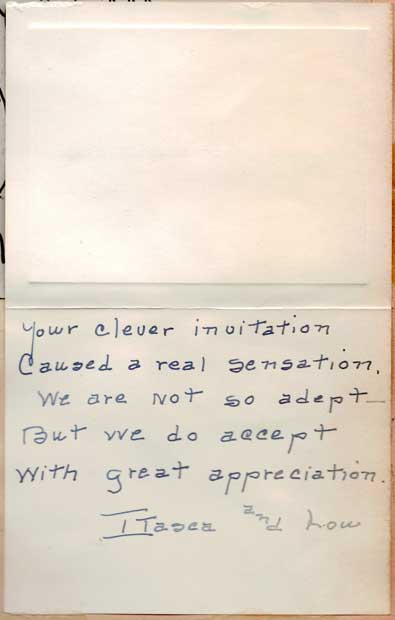 Your clever invitation
Caused a real sensation.
We are not so adept—
But we do accept
With great appreciation.
Itasca and Low